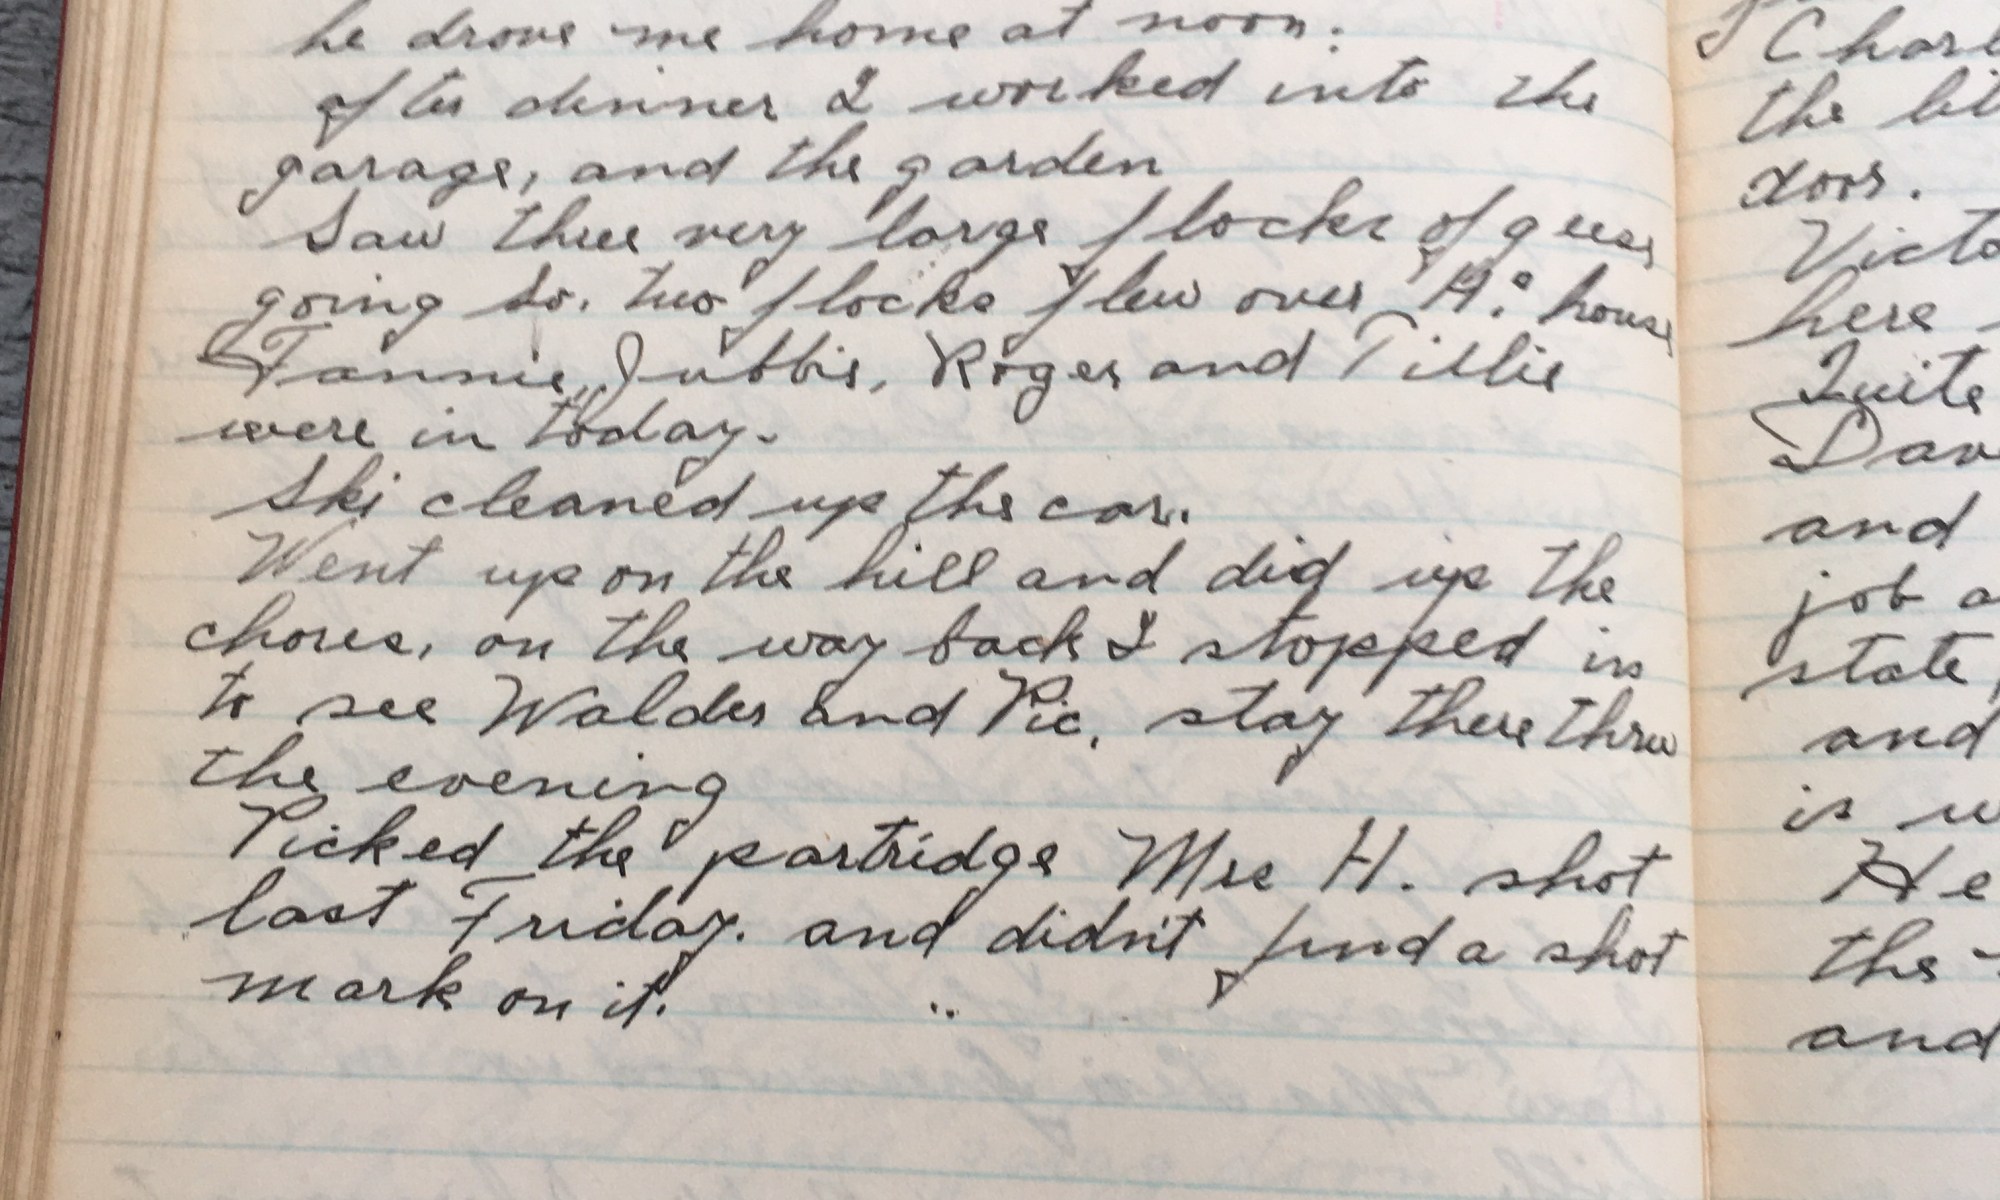 he drove me home at noon.
after dinner I worked into the
garage, and the garden
Saw three very large flocks of geese
going So. two flocks flew over H. house
Fannie, Jubbie, Roger and Tillie
were in today.
Ski cleaned up the car.
Went up on the hill and did up the
chores, on the way back I stopped in
to see Walder and Pic, stay there thru
the evening
Picked the partridge Mrs H. shot
last Friday. and didn't find a shot
mark on it.
the
doors.
here
Quite
and
job
state,
and
is
He
the
and